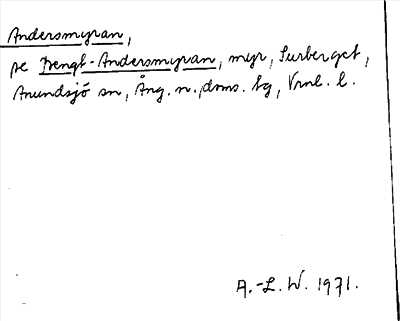 Andersmyran,
se Bengt-Andersmyran, myr, Surberget,
Anundsjö sn, Ång. n. doms. hg, Vrnl. l.
A.-L. W. 1971.